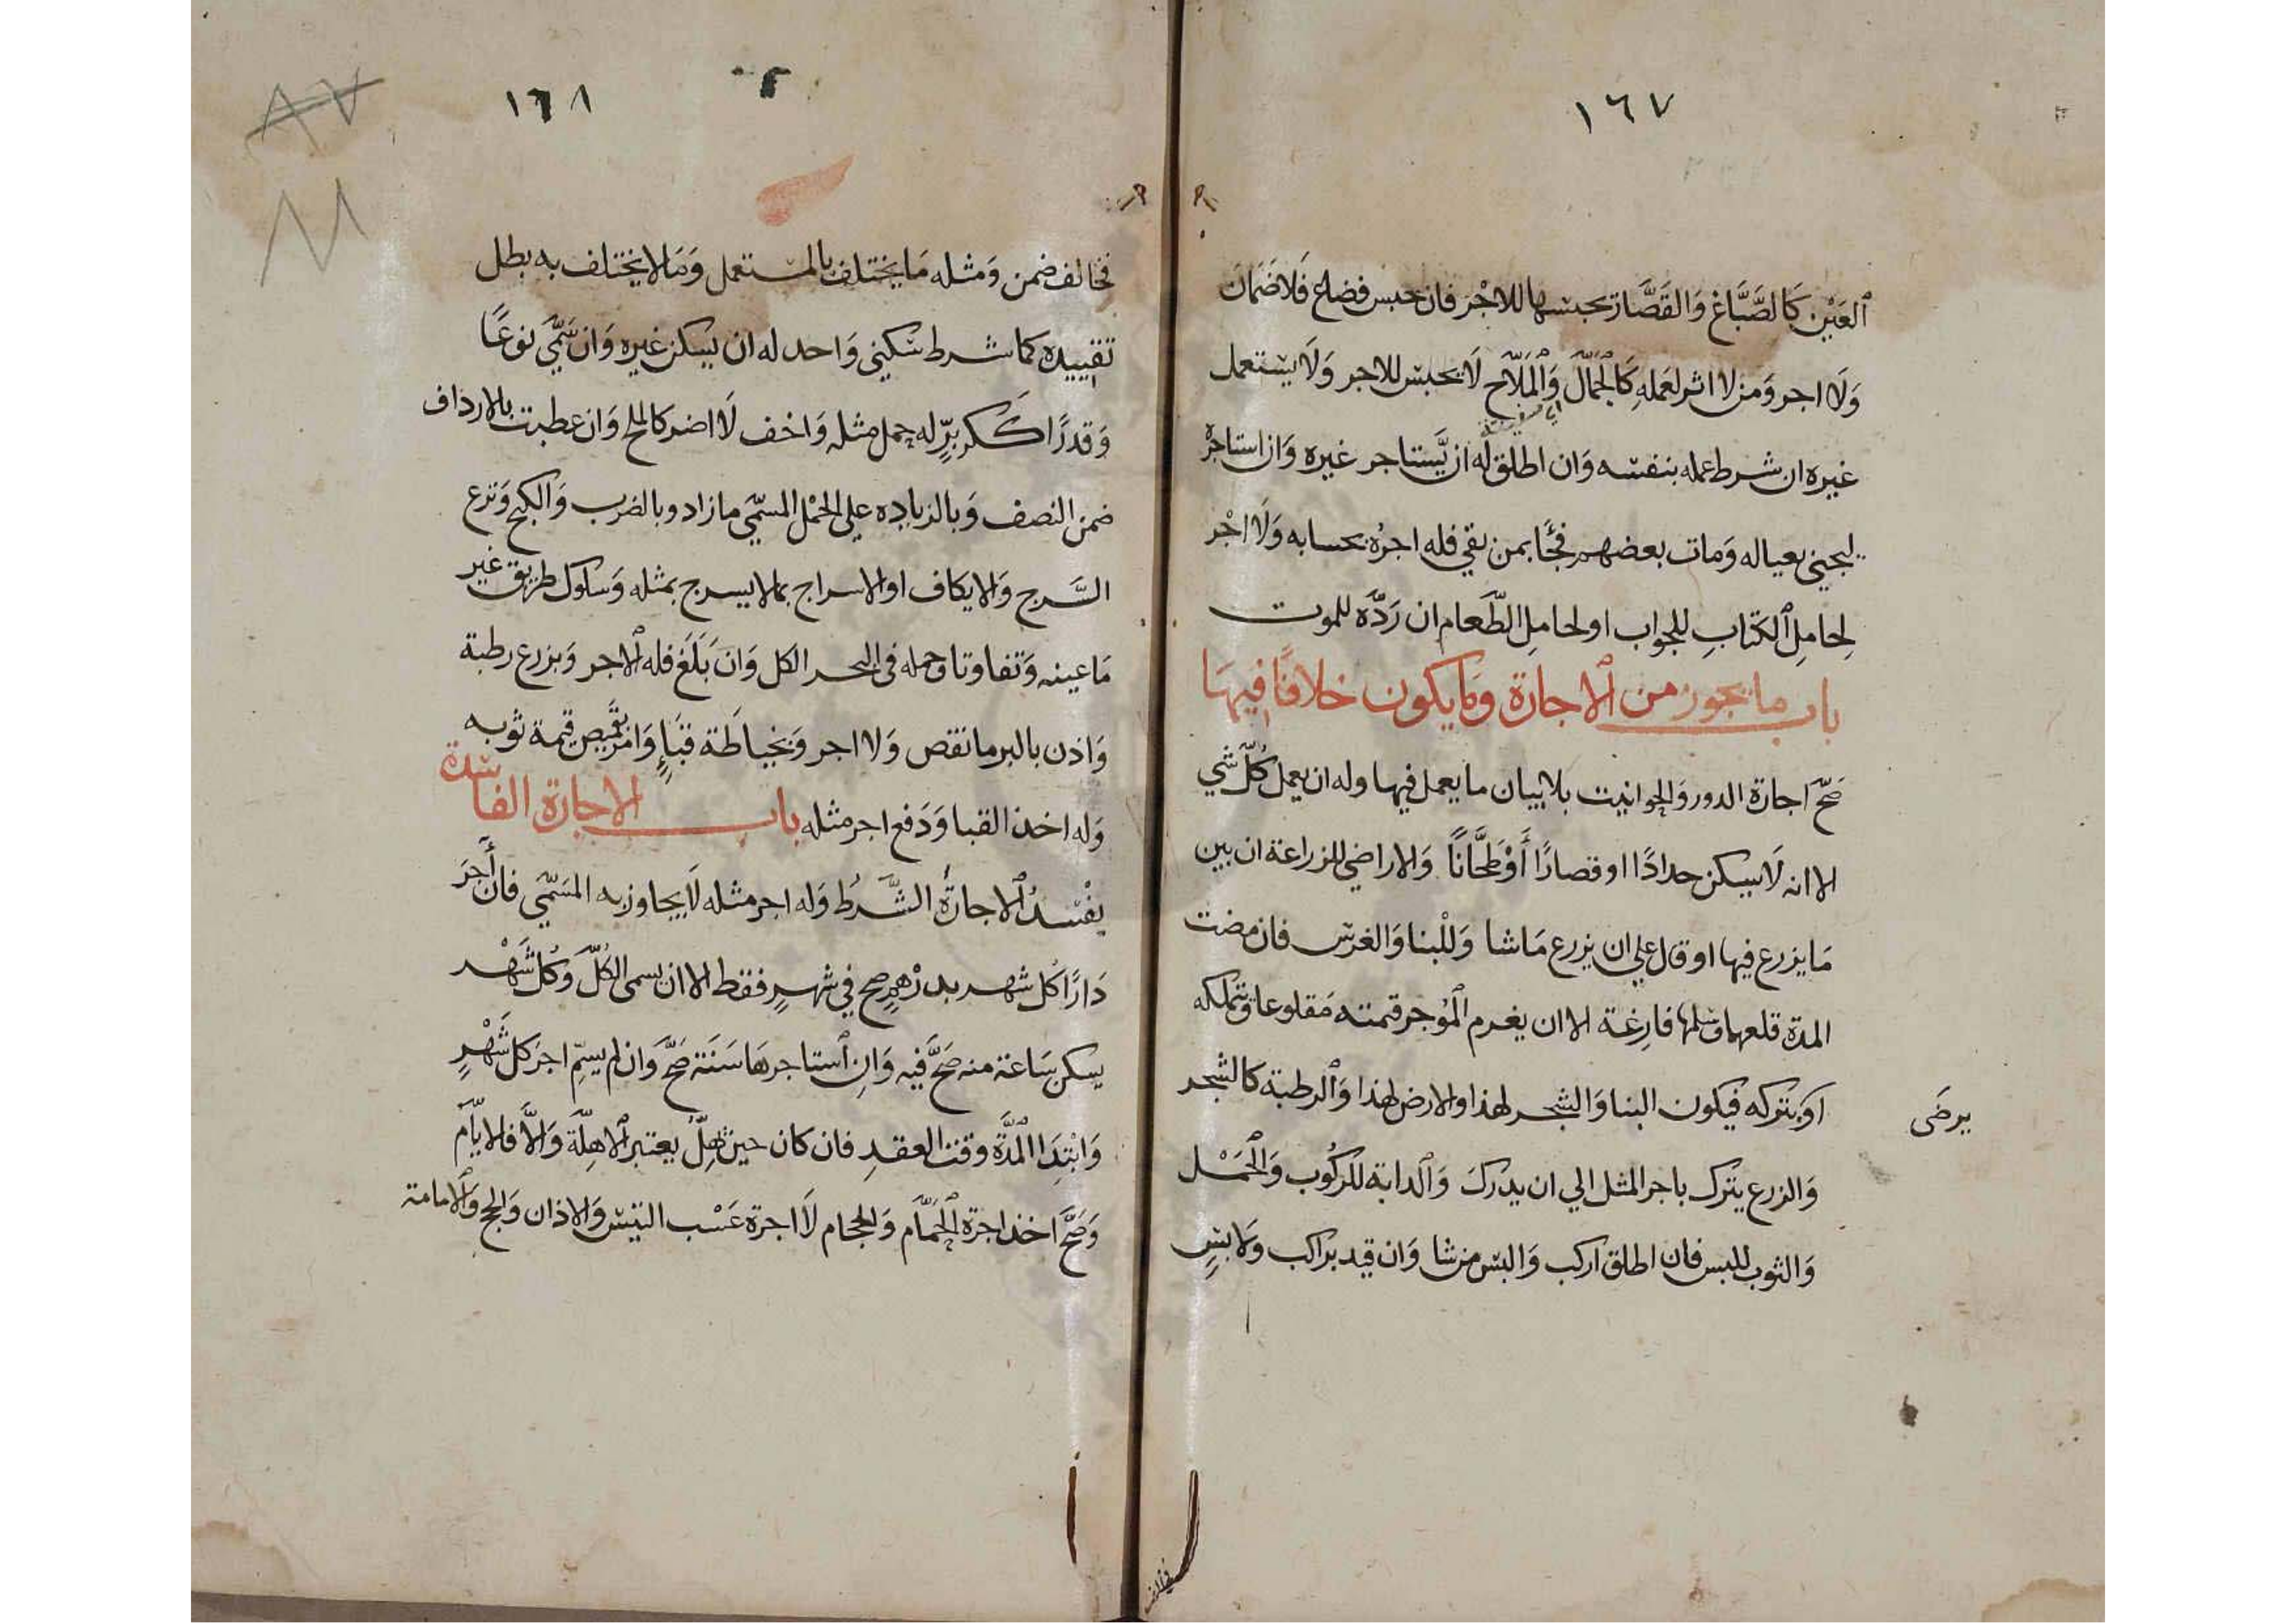 ١٦٧
ٱلعَيْن كَالصَّبَّاغ وَالقَصَّار تحبسها للاجْر فان حبس فضاع فَلاضَمَانَ
وَلَا اجر وَمن لا اثر لعَملهِ كَالجَمَّال وَالْمَلَّاح لَا يحبس للاجر وَلَا يستعمل
اي سفينة
غيره ان شرط عمله بنفسه وَان اطلق لَه ان يَّستاجر غيره وَان استاجره
ليجئ بعياله وَمات بعضهم فجَّا بمن بقي فله اجرُه بحسابه وَلَا اجْر
لِحامِل ٱلكتابِ للجواب او لحامِل الطَّعام ان رَدَّه للموت
باب ما يجوز من ٱلاجارة وَمَا يكون خلافًا فيهَا
صَحّ اجارة الدور وَالحوانيت بلا بيان ما يعمل فيها وله ان يعمل كُلَّ شي
الا انه لَا يسكن حدادًا او قصارًا أَوْ طَحَّانًا وَالاراضي للزراعة ان بين
مَا يزرع فيها او قال علي ان يزرع مَا شا وَلِلْبنا وَالغرس فان مضت
المدة قلعهما وسلمها فارِغة الا ان يغرم المُوجر قيمته مَقلوعا وَيتملكه
او يتركه فيكون البنا وَالشجر لهذا والارض لهذا وَٱلرطبة كالشجر
يرضَى
وَالزرع يترك باجر المثل الي ان يدركَ وَٱلدابة للركُوب وَالحَمْل
وَالثوب للبس فان اطلق اركب وَالبس من شا وَان قيد براكب وَلابسٍ
فخالف
١٦٨
فخالف ضمن وَمثله مَا يختلف بالمستعمل وَمَا لا يختلف به بطل
تقييده كما شرط سكني وَاحد له ان يسكن غيره وَان سَمَّي نوعًا
وَقدرًا ككر برٍّ له حمل مثله وَاخف لَا اضر كالملح وَان عطبت بالارداف
ضمن النصف وَبالزيادِه علي الحمْل المسمّي ما زاد وبالضرب وَالكبح وَنزع
السَّرج وَالايكاف او الاسراج بما لا يسرج بمثله وَسلوك طريق غير
مَا عينه وَتفاوتا وحمله في البحر الكل وَان بَلَغ فله ٱلاجر وَبزرع رطبة
وَاذن بالبر ما نقص وَلا اجر وَبخياطَة قبَاءٍ وَامر بقَميص قيمة ثوبه
وَله اخذ القبا وَدَفع اجر مثله باب الاجارة الفاسدة
يفْسدُ ٱلاجارةَ الشَّرطُ وَله اجر مثله لَا يجاوز به المسَمّي فان أَّجَرَ
دَارًا كُل شهر بدرْهمٍ صح في شهرٍ فقط الا ان يسمى الكُلَّ وَكُل شَهْر
يسكن سَاعة منه صَحَّ فيه وَانِ ٱستاجرهَا سَنَة صَحَّ وَان لم يسمّ اجر كل شَهْرٍ
وَابْتِدَا الْمدَّة وقت العقدِ فان كان حين يُهلُّ يعتبر ٱلاهِلَّة وَالاَّ فالايَّام
وَصَحَّ اخذ اجرة ٱلحَمَّام وَالحجام لَا اجرة عَسْب التيس وَالاذان وَالحج وَٱلامامة